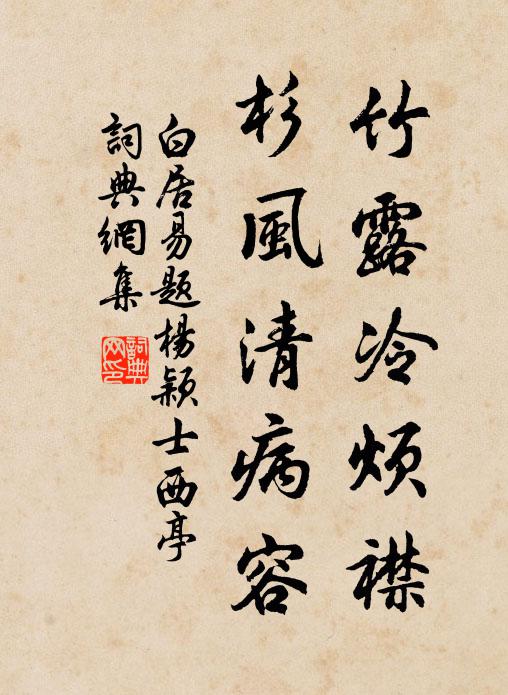 竹露冷烦襟
杉風清病容
白居易题楊颖士西亭
詞典網集
詞典網印